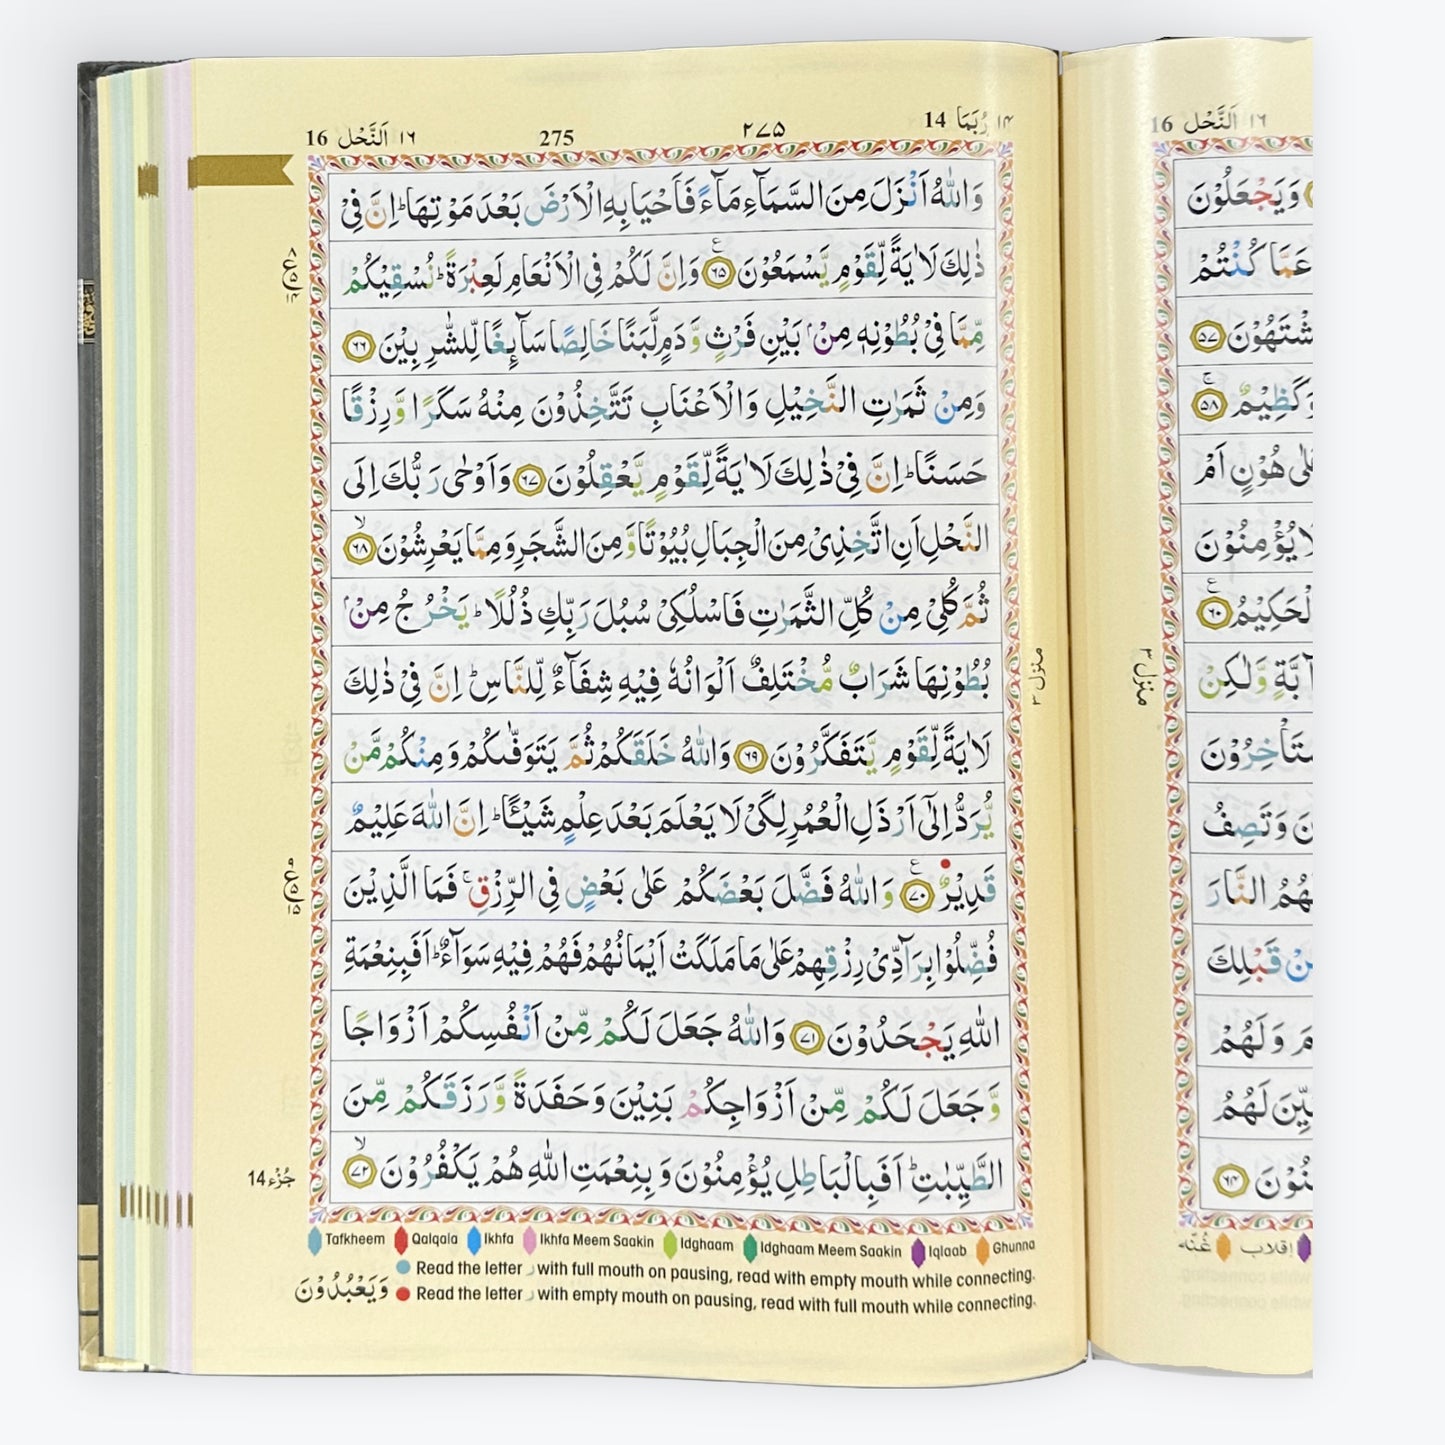 16 اَلنَّحْل ١٦
275
٢٧٥
14 رُبَمَا ١٤
وَاللّٰهُ اَنْزَلَ مِنَ السَّمَآءِ مَآءً فَاَحْيَا بِهِ الْاَرْضَ بَعْدَ مَوْتِهَا ؕ اِنَّ فِيْ
ذٰلِكَ لَاٰيَةً لِّقَوْمٍ يَّسْمَعُوْنَ ﴿٦٥﴾ وَاِنَّ لَكُمْ فِي الْاَنْعَامِ لَعِبْرَةً ؕ نُسْقِيْكُمْ
مِّمَّا فِيْ بُطُوْنِهٖ مِنْۢ بَيْنِ فَرْثٍ وَّدَمٍ لَّبَنًا خَالِصًا سَآئِغًا لِّلشّٰرِبِيْنَ ﴿٦٦﴾
وَمِنْ ثَمَرٰتِ النَّخِيْلِ وَالْاَعْنَابِ تَتَّخِذُوْنَ مِنْهُ سَكَرًا وَّرِزْقًا
حَسَنًا ؕ اِنَّ فِيْ ذٰلِكَ لَاٰيَةً لِّقَوْمٍ يَّعْقِلُوْنَ ﴿٦٧﴾ وَاَوْحٰى رَبُّكَ اِلَى
النَّحْلِ اَنِ اتَّخِذِيْ مِنَ الْجِبَالِ بُيُوْتًا وَّمِنَ الشَّجَرِ وَمِمَّا يَعْرِشُوْنَ ﴿٦٨﴾ۙ
ثُمَّ كُلِيْ مِنْ كُلِّ الثَّمَرٰتِ فَاسْلُكِيْ سُبُلَ رَبِّكِ ذُلُلًا ؕ يَخْرُجُ مِنْۢ
بُطُوْنِهَا شَرَابٌ مُّخْتَلِفٌ اَلْوَانُهٗ فِيْهِ شِفَآءٌ لِّلنَّاسِ ؕ اِنَّ فِيْ ذٰلِكَ
لَاٰيَةً لِّقَوْمٍ يَّتَفَكَّرُوْنَ ﴿٦٩﴾ وَاللّٰهُ خَلَقَكُمْ ثُمَّ يَتَوَفّٰىكُمْ وَمِنْكُمْ مَّنْ
يُّرَدُّ اِلٰٓى اَرْذَلِ الْعُمُرِ لِكَيْ لَا يَعْلَمَ بَعْدَ عِلْمٍ شَيْـًٔا ؕ اِنَّ اللّٰهَ عَلِيْمٌ
قَدِيْرٌ ﴿٧٠﴾ وَاللّٰهُ فَضَّلَ بَعْضَكُمْ عَلٰى بَعْضٍ فِي الرِّزْقِ ۚ فَمَا الَّذِيْنَ
فُضِّلُوْا بِرَآدِّيْ رِزْقِهِمْ عَلٰى مَا مَلَكَتْ اَيْمَانُهُمْ فَهُمْ فِيْهِ سَوَآءٌ ؕ اَفَبِنِعْمَةِ
اللّٰهِ يَجْحَدُوْنَ ﴿٧١﴾ وَاللّٰهُ جَعَلَ لَكُمْ مِّنْ اَنْفُسِكُمْ اَزْوَاجًا
وَّجَعَلَ لَكُمْ مِّنْ اَزْوَاجِكُمْ بَنِيْنَ وَحَفَدَةً وَّرَزَقَكُمْ مِّنَ
الطَّيِّبٰتِ ؕ اَفَبِالْبَاطِلِ يُؤْمِنُوْنَ وَبِنِعْمَتِ اللّٰهِ هُمْ يَكْفُرُوْنَ ﴿٧٢﴾ۙ
منزل ٣
جُزْء 14
Tafkheem Qalqala Ikhfa Ikhfa Meem Saakin Idghaam Idghaam Meem Saakin Iqlaab Ghunna
Read the letter ر with full mouth on pausing, read with empty mouth while connecting.
Read the letter ر with empty mouth on pausing, read with full mouth while connecting.
وَيَعْبُدُوْنَ
16 اَلنَّحْل ١٦
وَيَجْعَلُوْنَ
عَمَّا كُنْتُمْ
﴿٥٧﴾
وَكَظِيْمٌ ﴿٥٨﴾
هُوْنٍ اَمْ
لَا يُؤْمِنُوْنَ
الْحَكِيْمُ ﴿٦٠﴾
دَآبَّةٍ وَّلٰكِنْ
وَتَصِفُ
لَهُمُ النَّارَ
مِّنْ قَبْلِكَ
وَلَهُمْ
لَهُمُ
﴿٦٤﴾
منزل ٣
إقلاب غُنّه